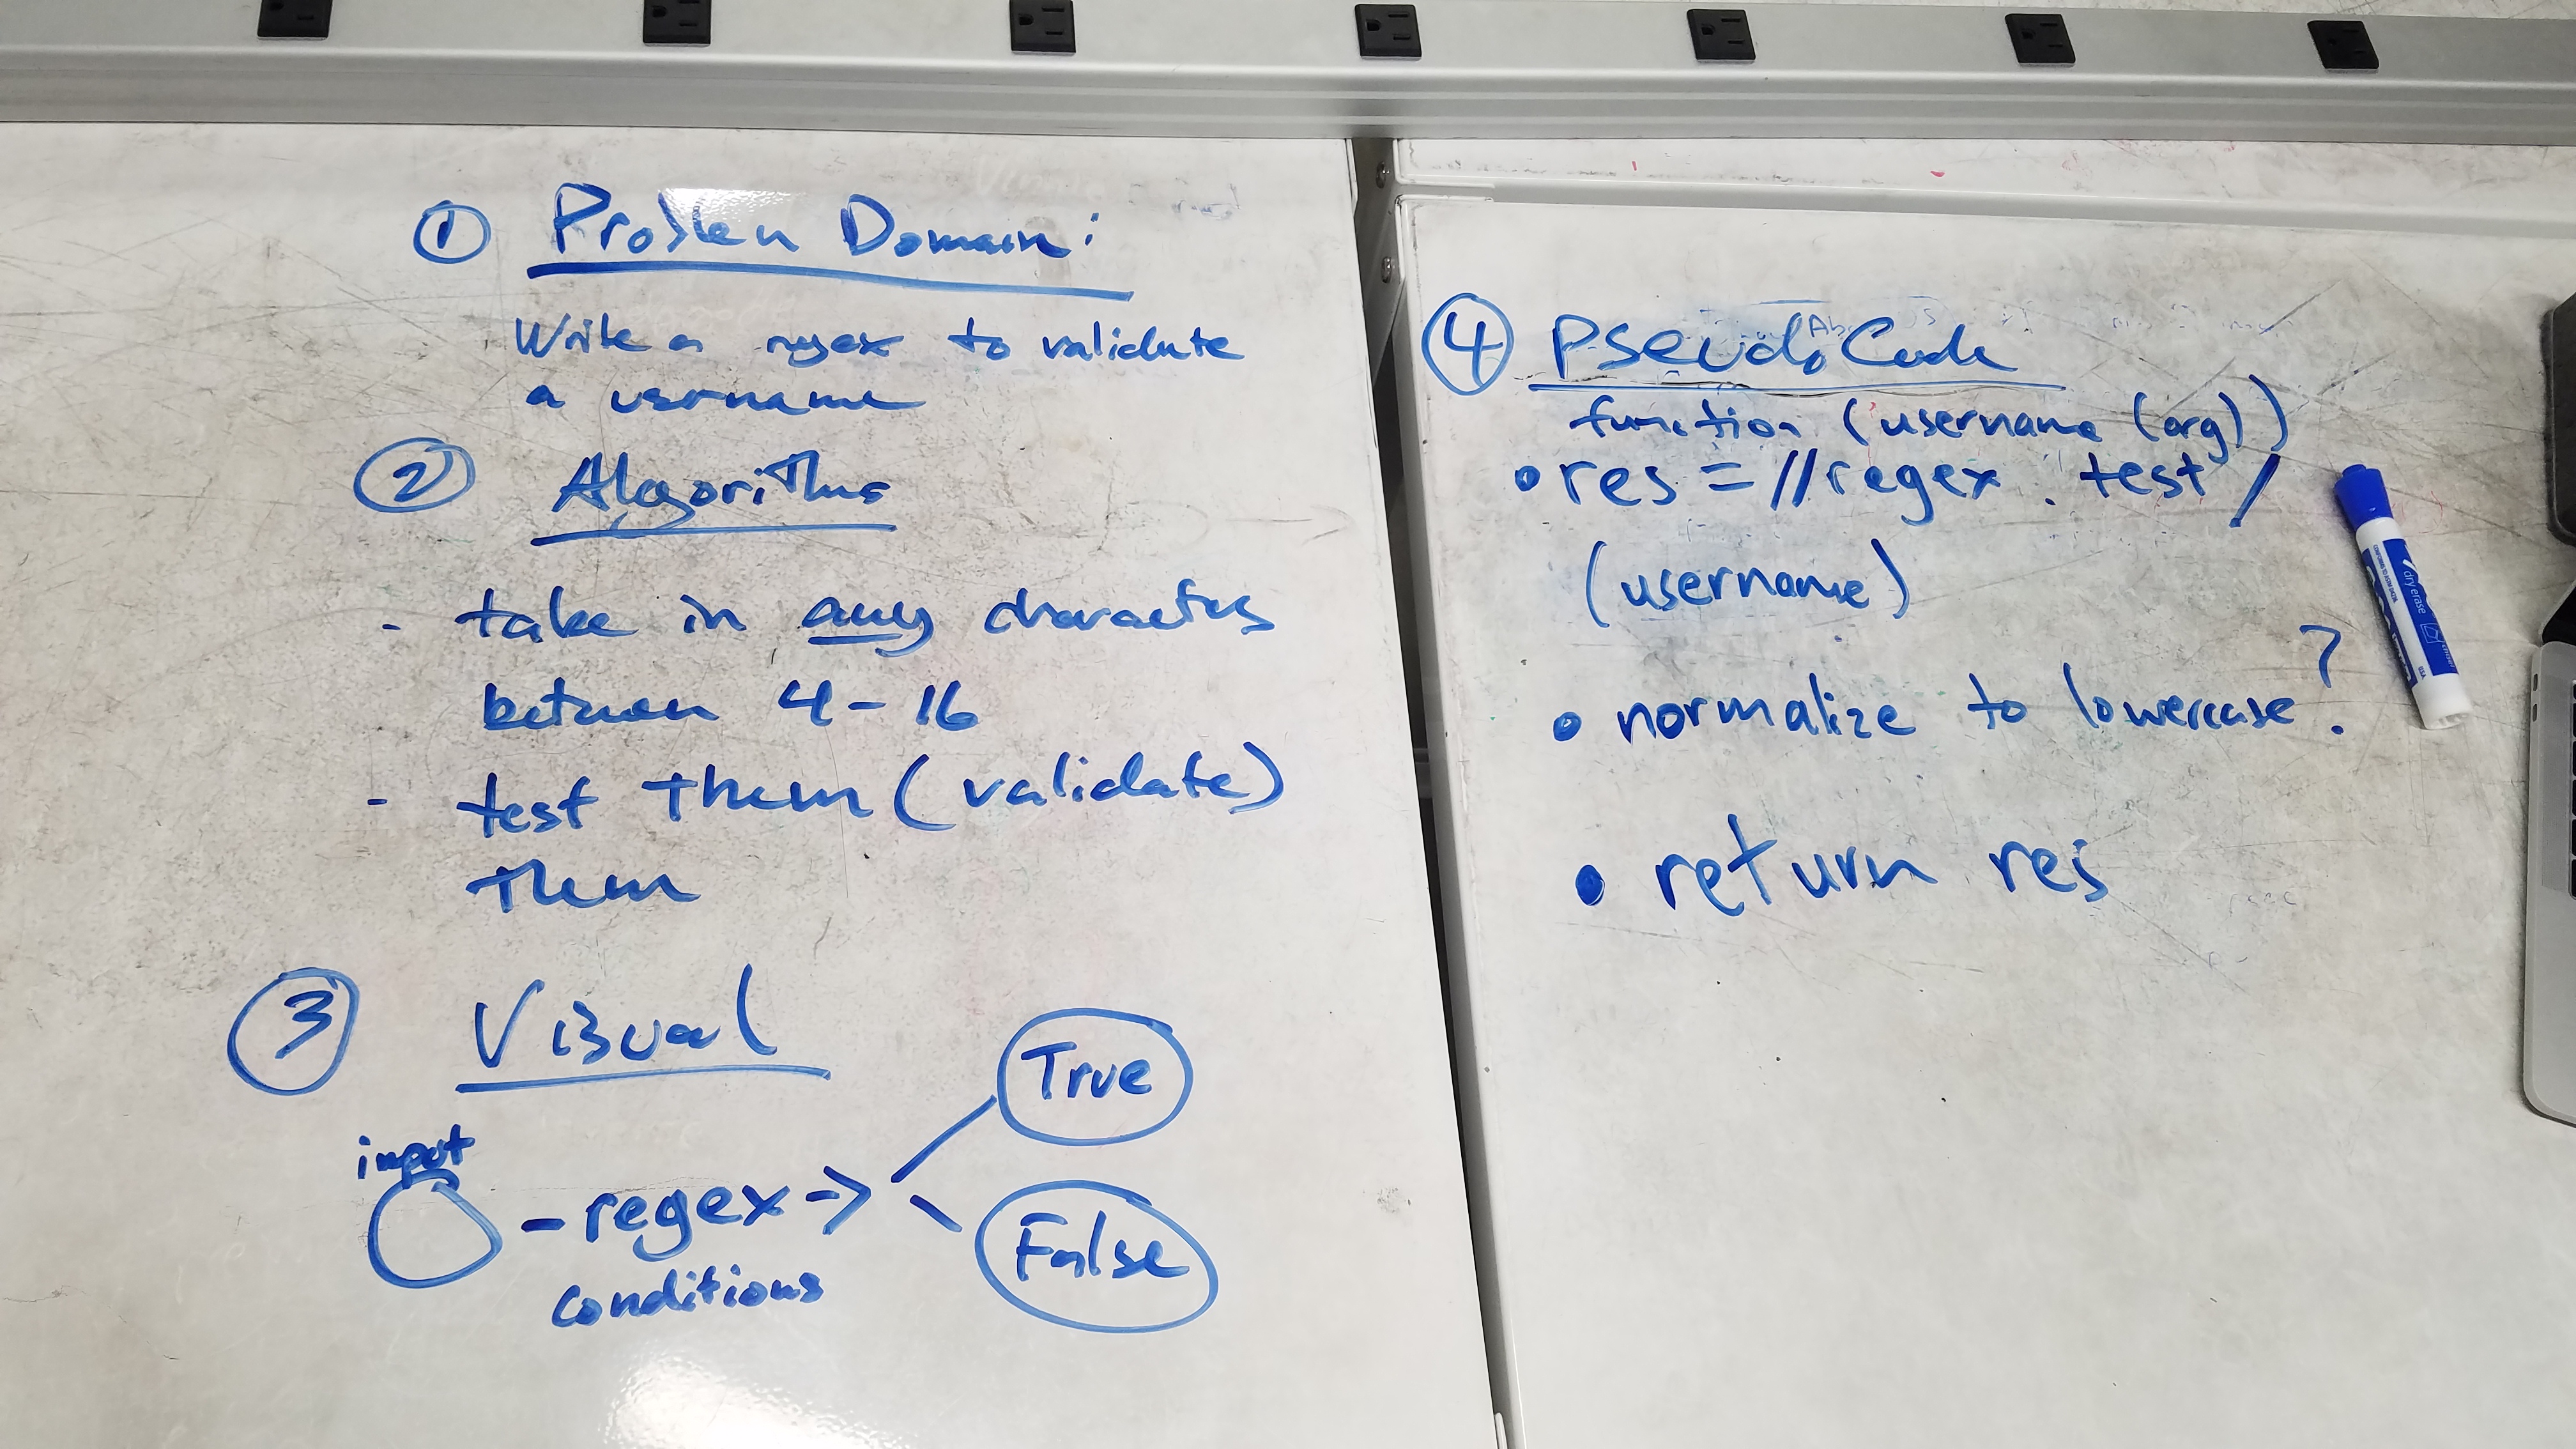 ① Problem Domain:
Write a regex to validate
a username
② Algorithms
- take in any characters
between 4-16
- test them (validate)
them
③ Visual
input
- regex ->
conditions
True
False
④ Pseudo Code
function (username (arg))
• res = //regex . test /
(username)
• normalize to lowercase?
• return res
dry erase